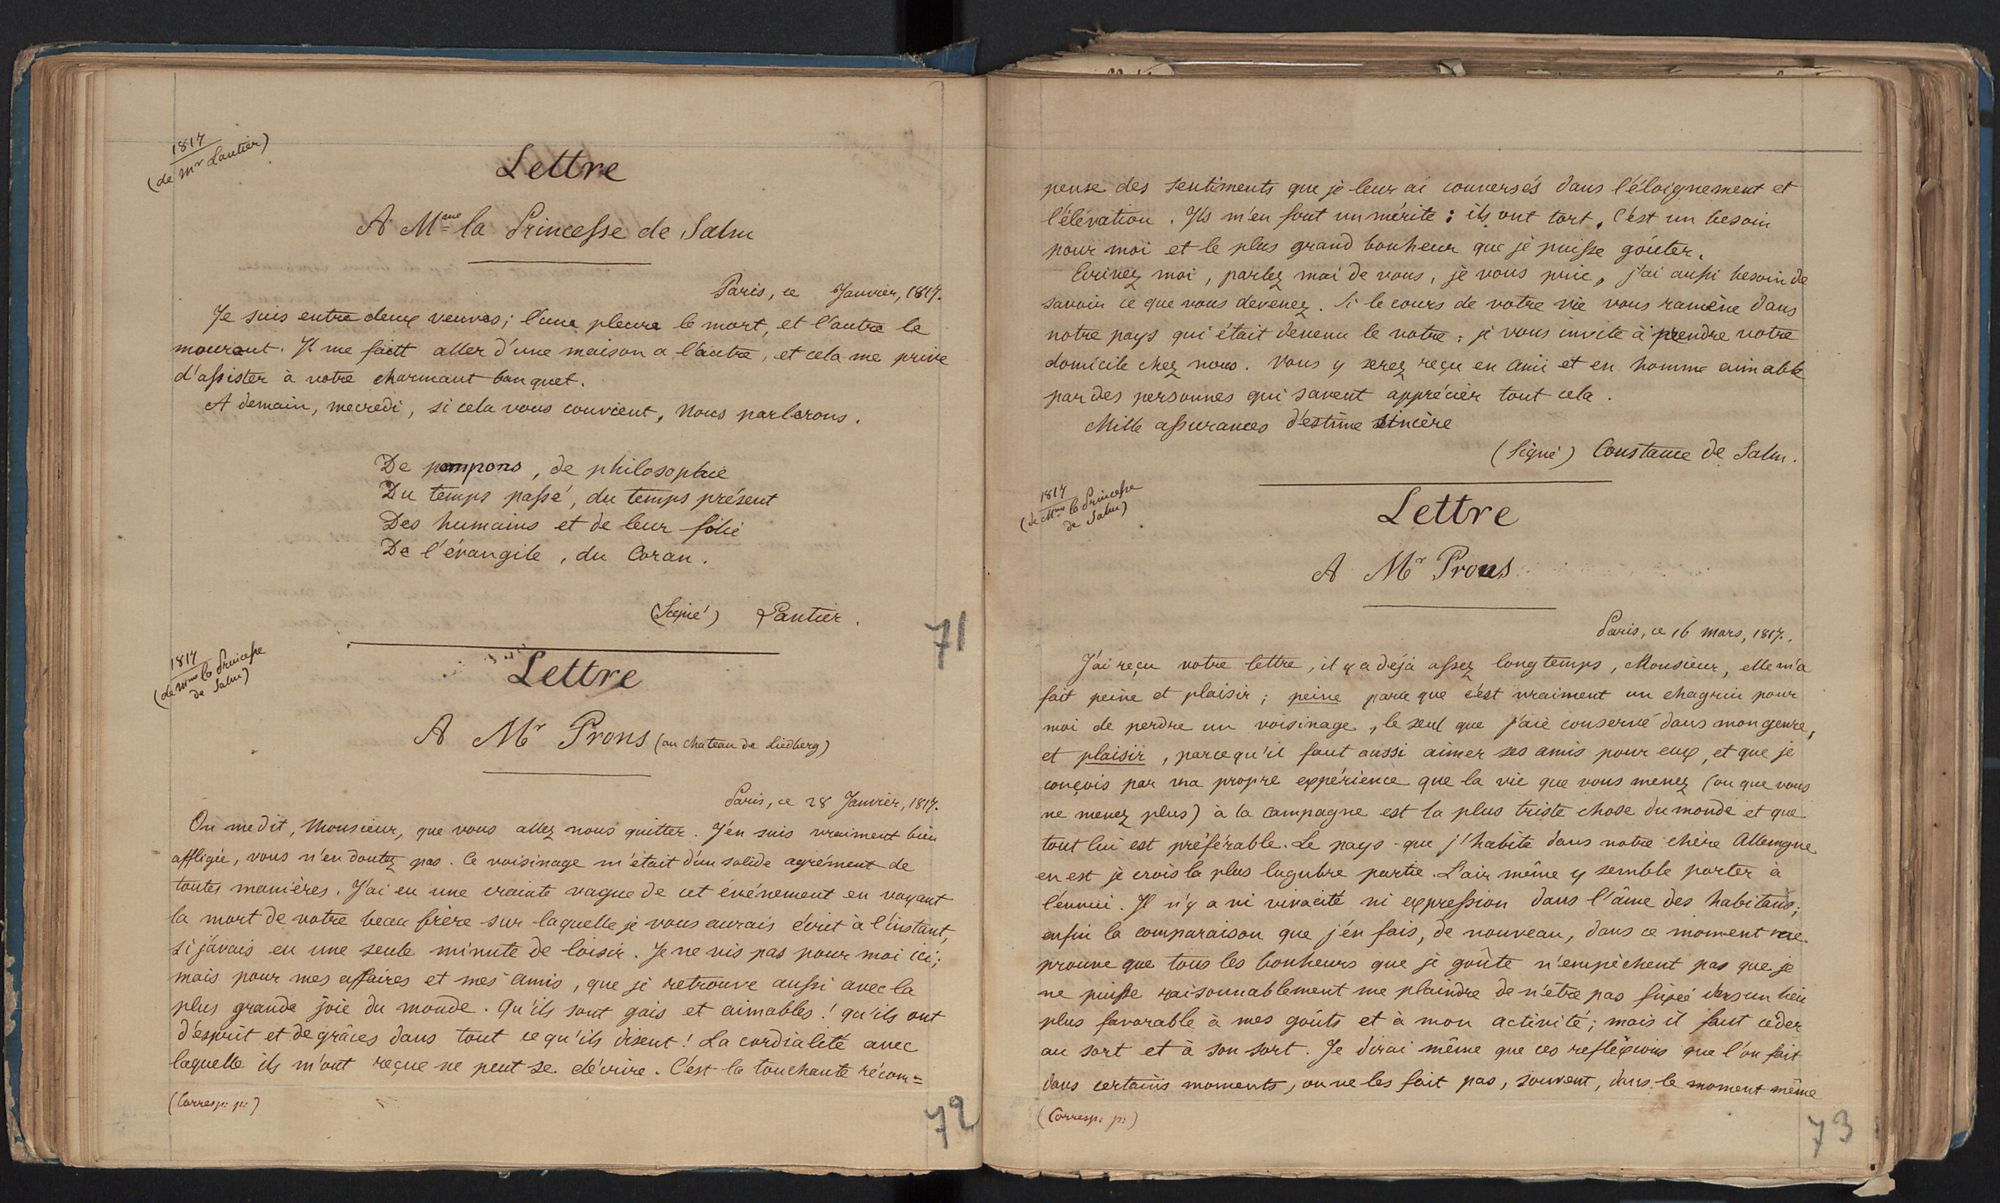 1817
(de Mr Lantier)
Lettre
A Mme la Princesse de Salm
Paris, ce Janvier, 1817.
Je suis entre deux veuves; l'une pleure le mort, et l'autre le
mourant. Il me faitt aller d'une maison a l'autre, et cela me prive
d'assister à votre charmant banquet.
A demain, mecredi, si cela vous convient, nous parlerons.
De pompons, de philosophie
Du temps passé, du temps présent
Des humains et de leur folie
De l'évangile, du Coran.
(Signé) Lantier.
71
1817
(de Mme la Princesse
de Salm)
Lettre
A Mr Prons (au chateau de Liedberg)
Paris, ce 28 Janvier, 1817.
On me dit, Monsieur, que vous allez nous quitter. J'en suis vraiment bien
affligée, vous n'en doutez pas. Ce voisinage m'était d'un solide agrément de
toutes manières. J'ai eu une crainte vague de cet événement en voyant
la mort de votre beau frère sur laquelle je vous aurais écrit à l'instant,
si j'avais eu une seule minute de loisir. Je ne vis pas pour moi ici;
mais pour mes affaires et mes amis, que je retrouve aussi avec la
plus grande joie du monde. Qu'ils sont gais et aimables! qu'ils ont
d'esprit et de grâces dans tout ce qu'ils disent! La cordialité avec
laquelle ils m'ont reçue ne peut se décrire. C'est la touchante récom=
(Corresp. p:)
72
pense des sentiments que je leur ai conversés dans l'éloignement et
l'élévation. Ils m'en font un mérite: ils ont tort, c'est un besoin
pour moi et le plus grand bonheur que je puisse goûter.
Ecrivez moi, parlez moi de vous, je vous prie, j'ai aussi besoin de
savoir ce que vous devenez. Si le cours de votre vie vous ramène dans
notre pays qui était devenu le votre, je vous invite à prendre votre
domicile chez nous. Vous y serez reçu en ami et en homme aimable
par des personnes qui savent apprécier tout cela.
Mille assurances d'estime sincère
(Signé) Constance de Salm.
1817
(de Mme la Princesse
de Salm)
Lettre
A Mr Prons
Paris, ce 16 mars, 1817.
J'ai reçu votre lettre, il y a déjà assez longtemps, Monsieur, elle m'a
fait peine et plaisir; peine parce que c'est vraiment un chagrin pour
moi de perdre un voisinage, le seul que j'aie conservé dans mon genre,
et plaisir, parcequ'il faut aussi aimer ses amis pour eux, et que je
conçois par ma propre expérience que la vie que vous menez (ou que vous
ne menez plus) à la campagne est la plus triste chose du monde et que
tout lui est préférable. Le pays que j'habite dans notre chère Allemagne
en est je crois la plus lugubre partie. L'air même y semble porter à
l'ennui. Il n'y a ni vivacité ni expression dans l'âme des habitans;
enfin la comparaison que j'en fais, de nouveau, dans ce moment me
prouve que tous les bonheurs que je goûte n'empèchent pas que je
ne puisse raisonnablement me plaindre de n'être pas fixée dans un lieu
plus favorable à mes goûts et à mon activité; mais il faut céder
au sort et à son sort. Je dirai même que ces reflexions que l'on fait
dans certains moments, on ne les fait pas, souvent, dans le moment même
(Corresp. p:)
73